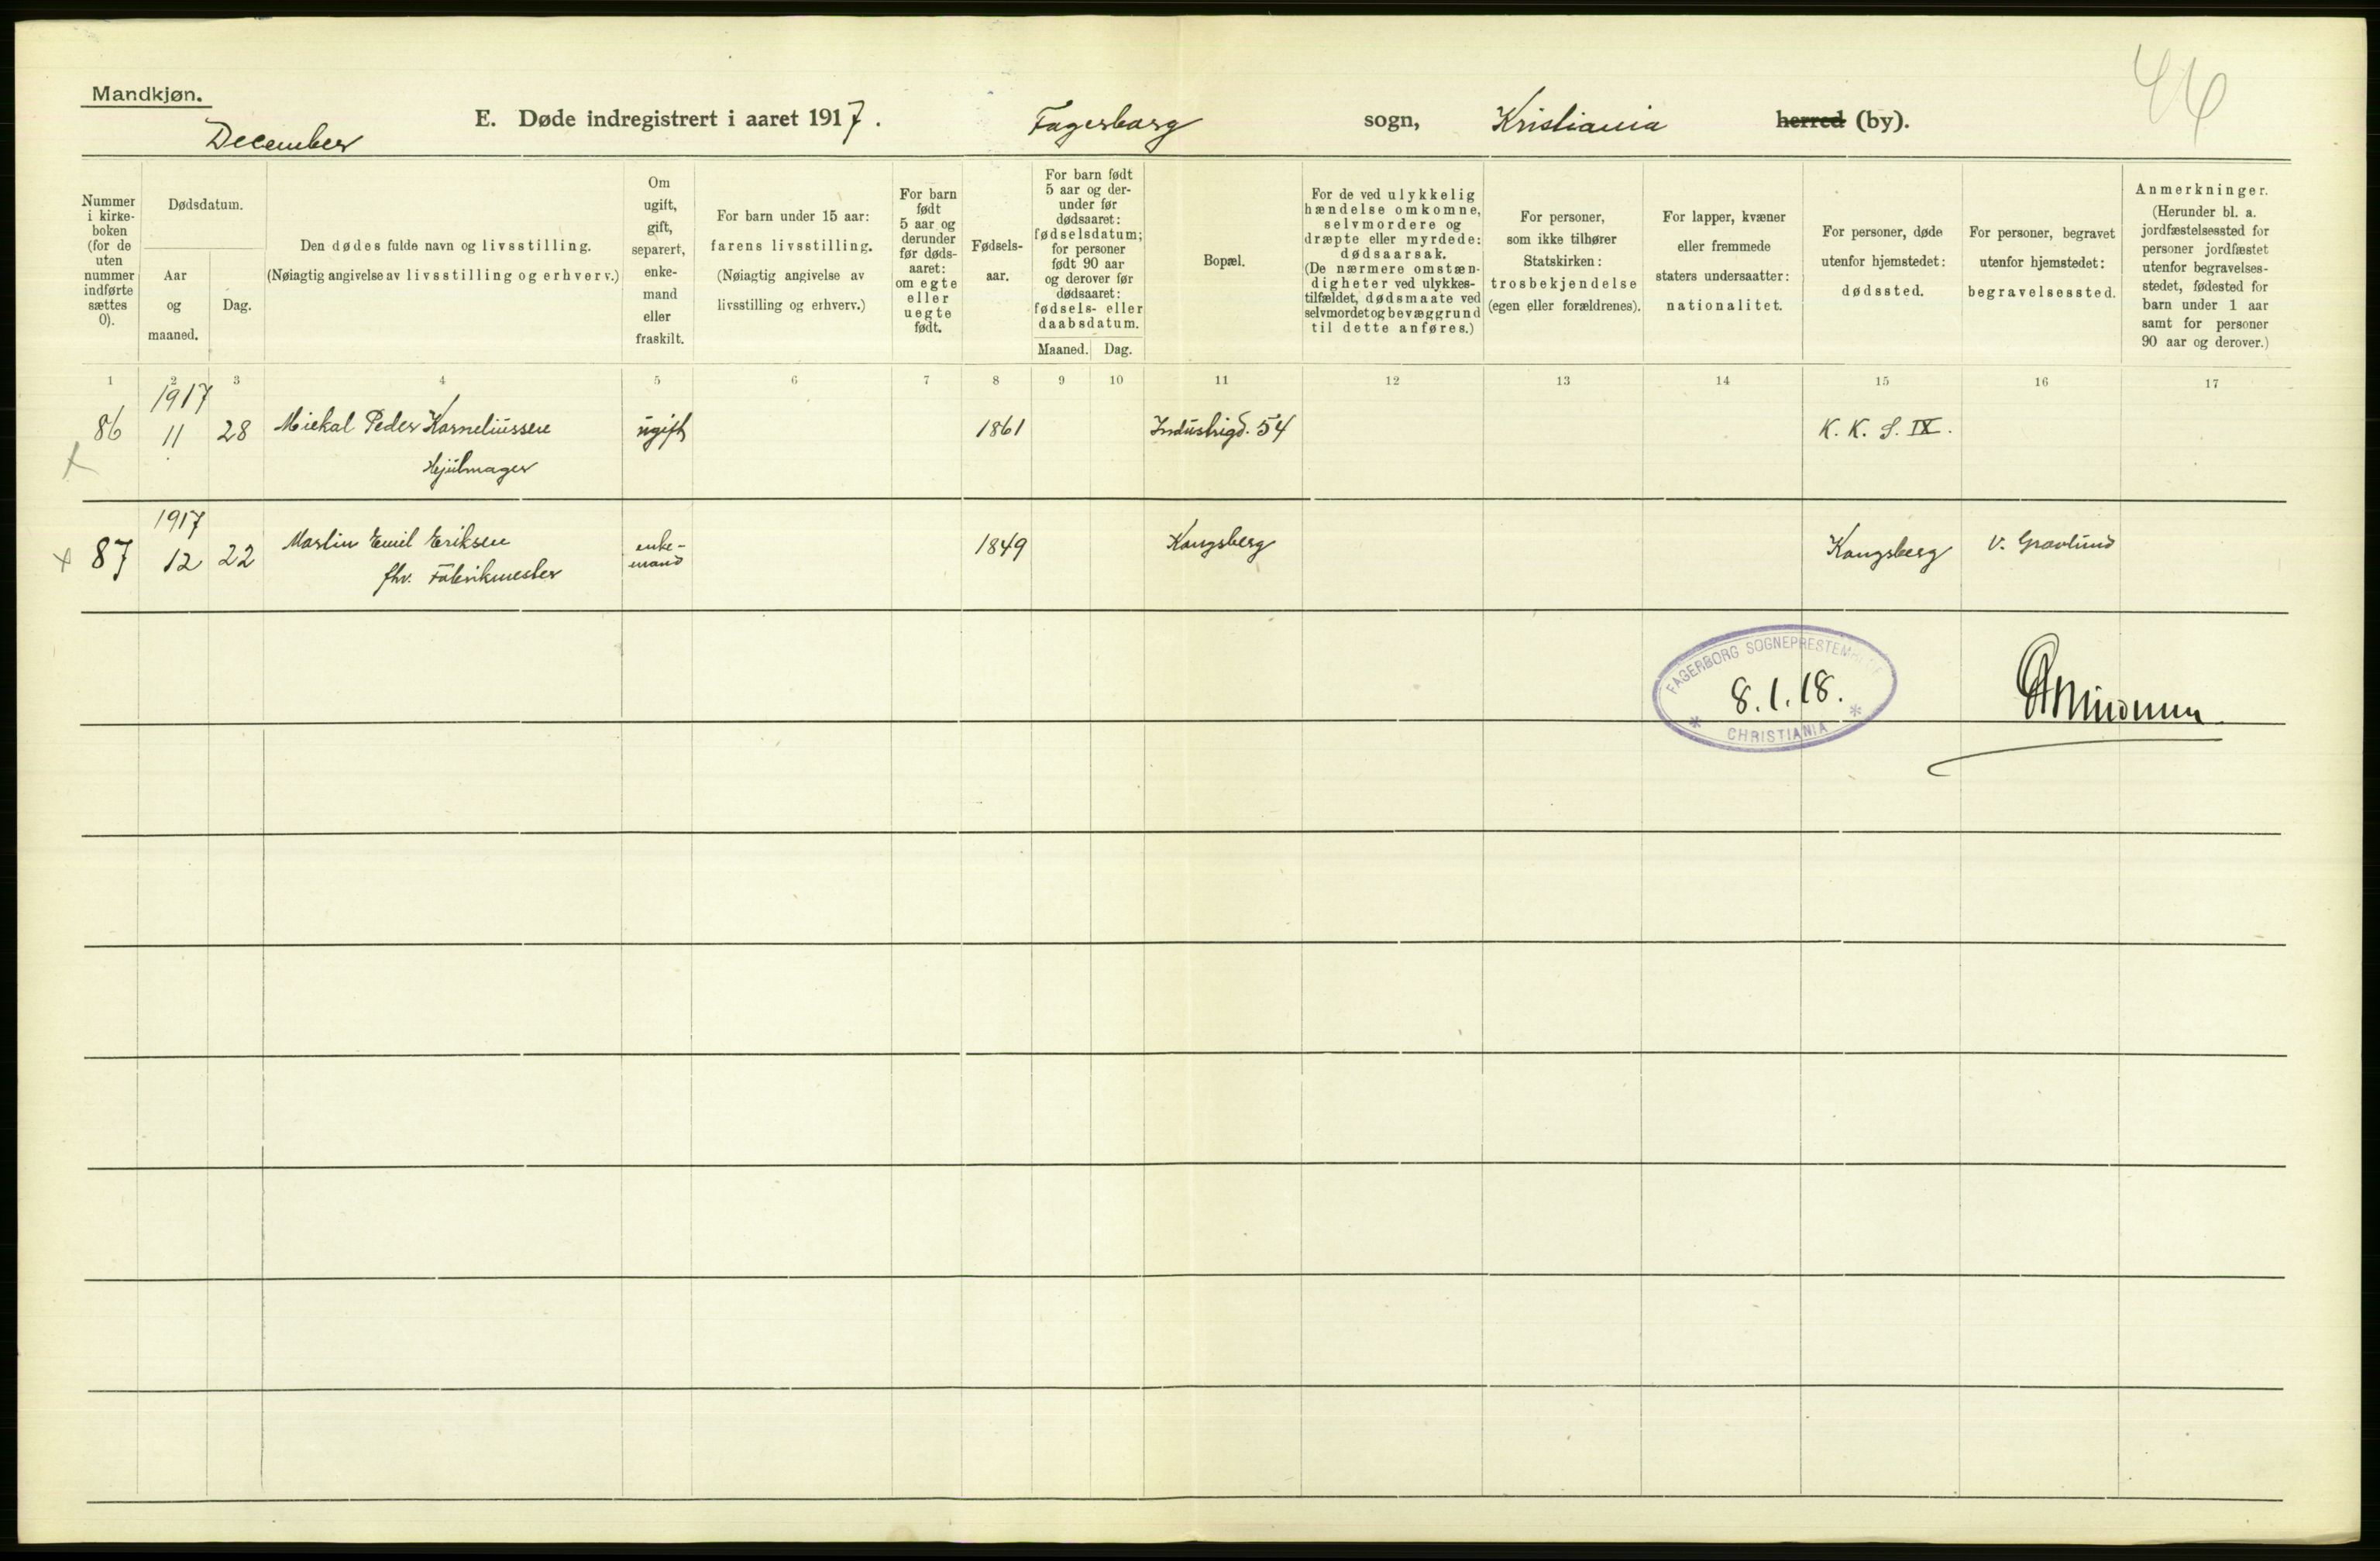 Mandkjøn.
December
E. Døde indregistrert i aaret 1917.
Fagerborg sogn, Kristiania herred (by).
44
Nummer i kirke- boken (for de uten nummer indførte sættes 0).
Dødsdatum.
Aar og maaned.
Dag.
Den dødes fulde navn og livsstilling.
(Nøiagtig angivelse av livsstilling og erhverv.)
Om ugift, gift, separert, enke- mand eller fraskilt.
For barn under 15 aar:
farens livsstilling.
(Nøiagtig angivelse av
livsstilling og erhverv.)
For barn født 5 aar og derunder før døds- aaret: om egte eller uegte født.
Fødsels- aar.
For barn født 5 aar og der- under før dødsaaret: fødselsdatum; for personer født 90 aar og derover før dødsaaret: fødsels- eller daabsdatum.
Maaned. Dag.
Bopæl.
For de ved ulykkelig hændelse omkomne, selvmordere og dræpte eller myrdede: dødsaarsak. (De nærmere omstæn- digheter ved ulykkes- tilfældet, dødsmaate ved selvmordet og bevæggrund til dette anføres.)
For personer, som ikke tilhører Statskirken: trosbekjendelse (egen eller forældrenes).
For lapper, kvæner eller fremmede staters undersaatter: nationalitet.
For personer, døde utenfor hjemstedet: dødssted.
For personer, begravet utenfor hjemstedet: begravelsessted.
Anmerkninger. (Herunder bl. a. jordfæstelsessted for personer jordfæstet utenfor begravelses- stedet, fødested for barn under 1 aar samt for personer 90 aar og derover.)
1 2 3 4 5 6 7 8 9 10 11 12 13 14 15 16 17
1917
86 11 28 Mickal Peder Korneliussen ugift 1861 Industrigd. 54 K. K. S. IX.
Hjulmager
1917
87 12 22 Martin Emil Eriksen enke- mand 1849 Kongsberg Kongsberg V. Gravlund
fhv. Fabrikmester
FAGERBORG SOGNEPRESTEMBEDE
8.1.18.
* CHRISTIANIA *